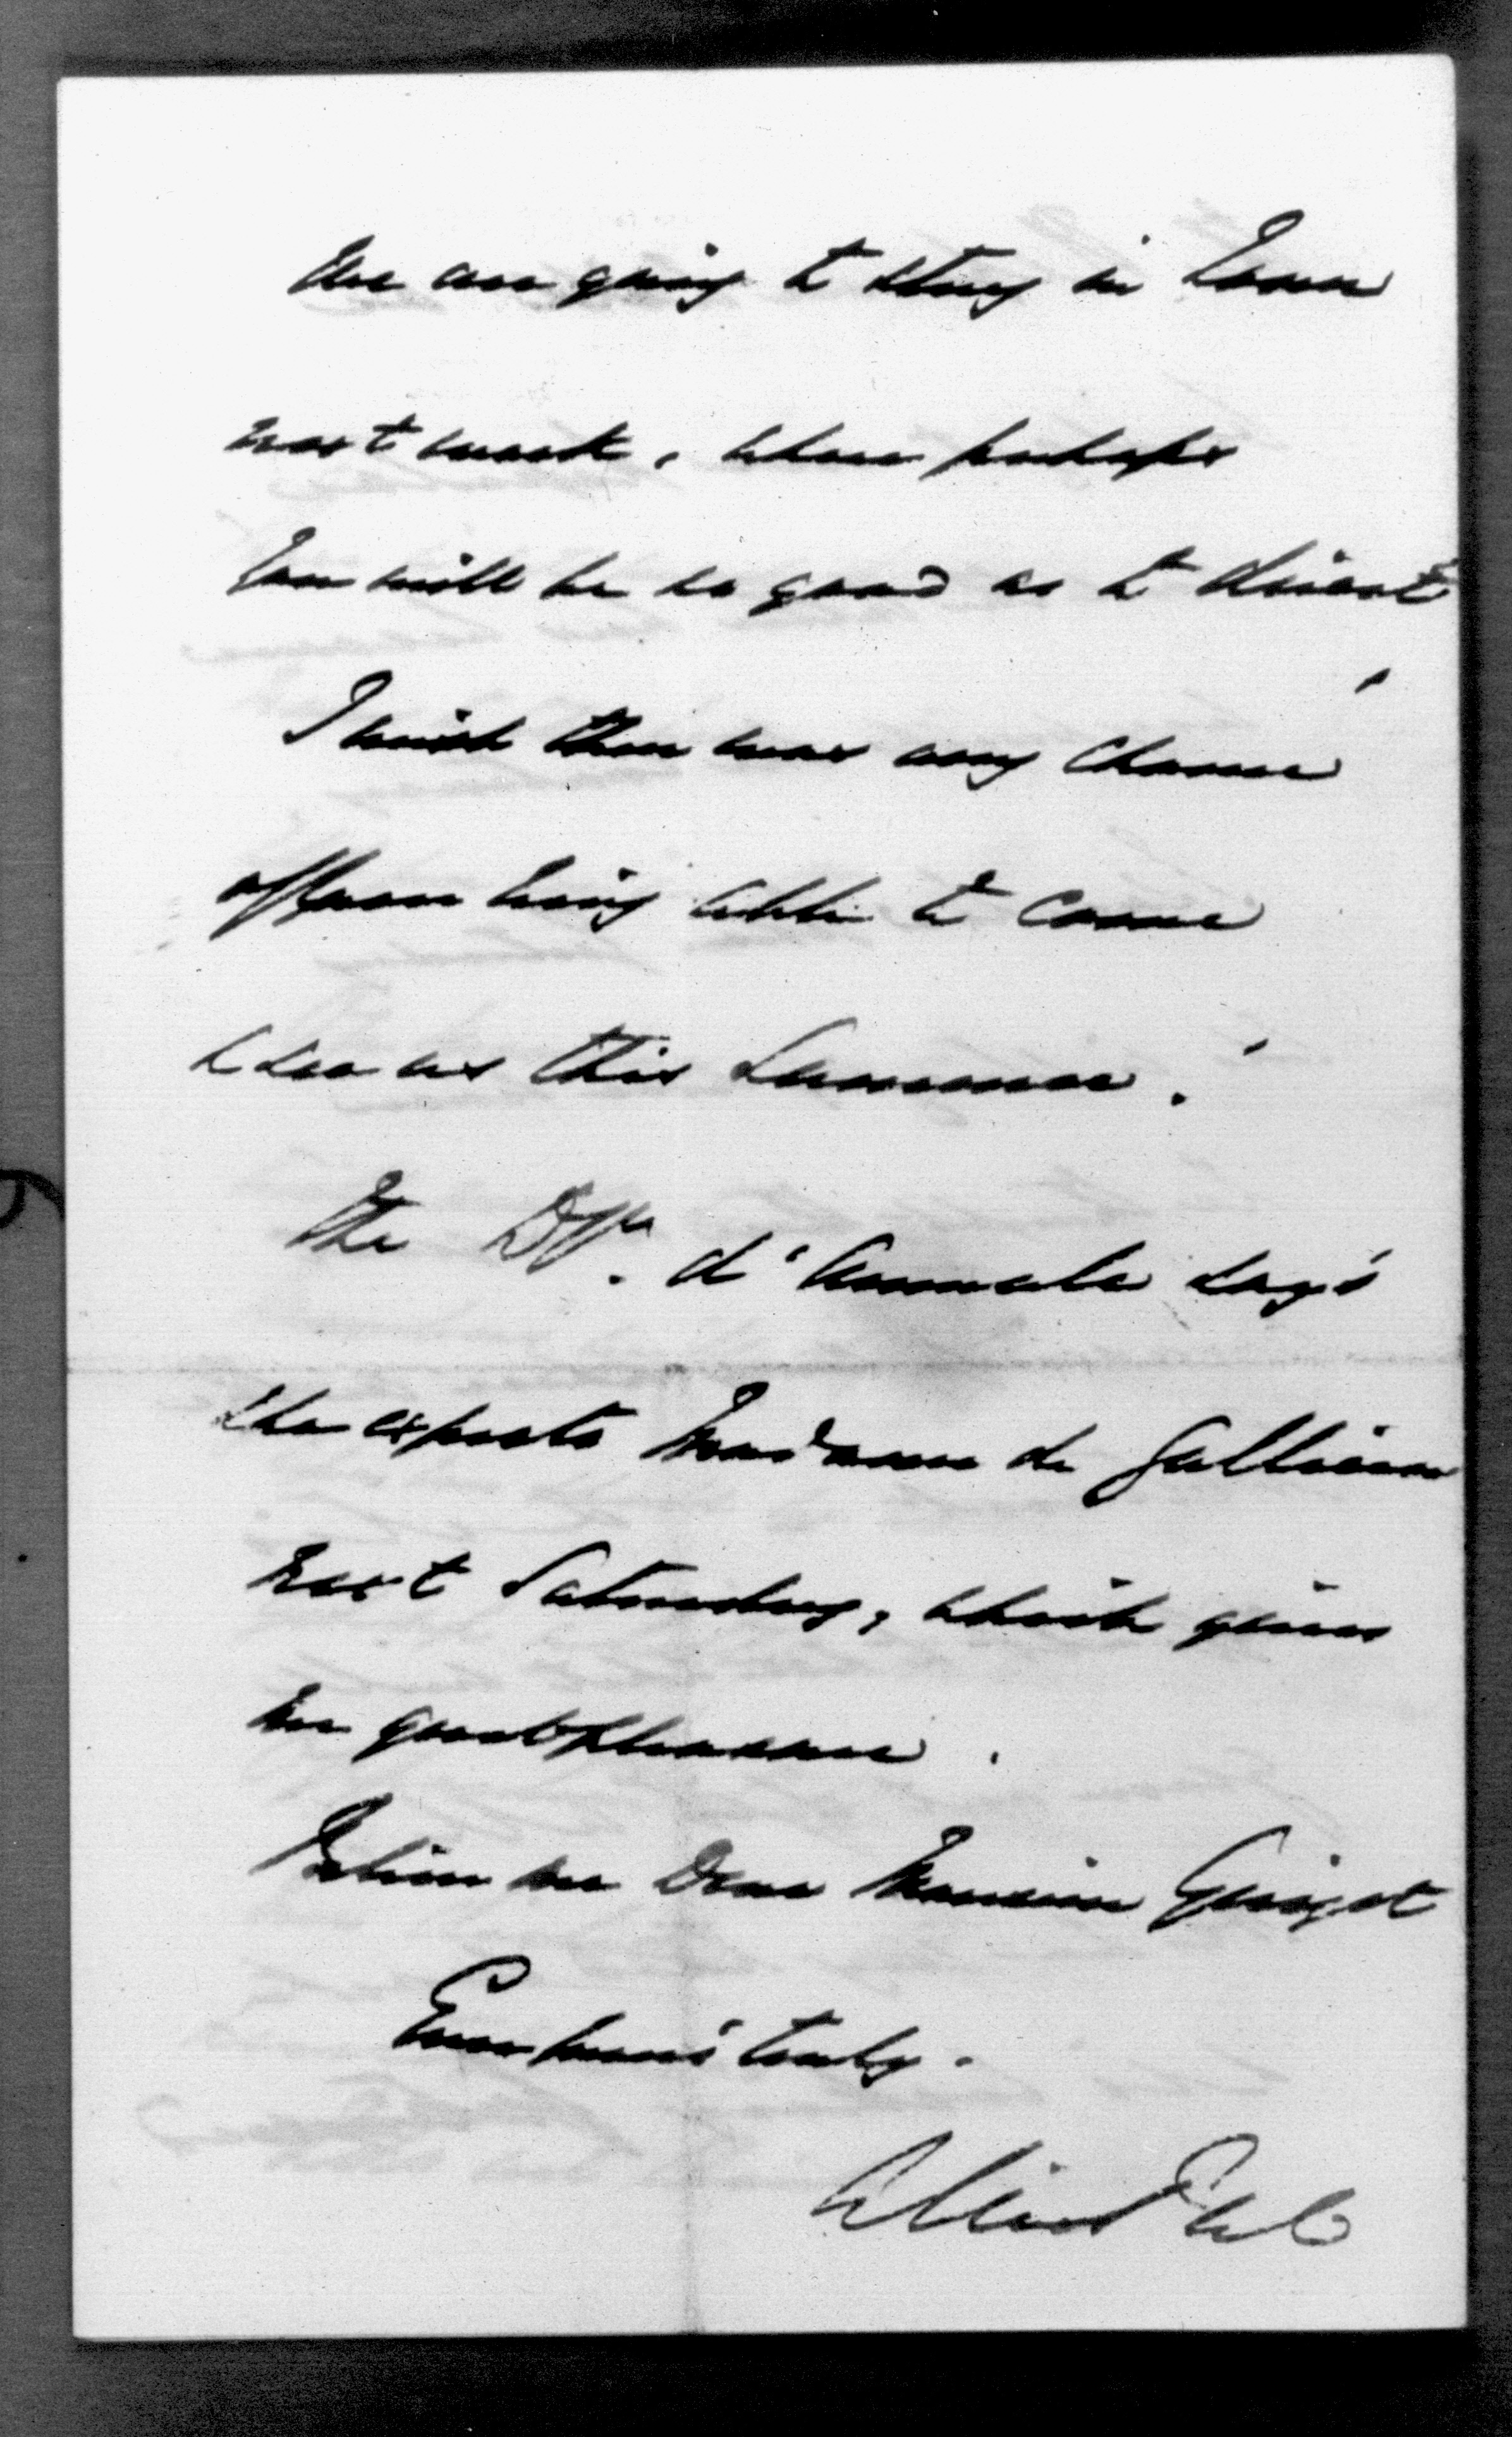 We are going to stay in Town
next week, where perhaps
You will be so good as to direct
I wish there was any chance
of your being able to come
& see us this Summer.
The Dss. d'Aumale says
she expects Madame de Galliera
next Saturday, which gives
me great pleasure.
Believe me Dear Monsieur Guizot
Ever yours truly.